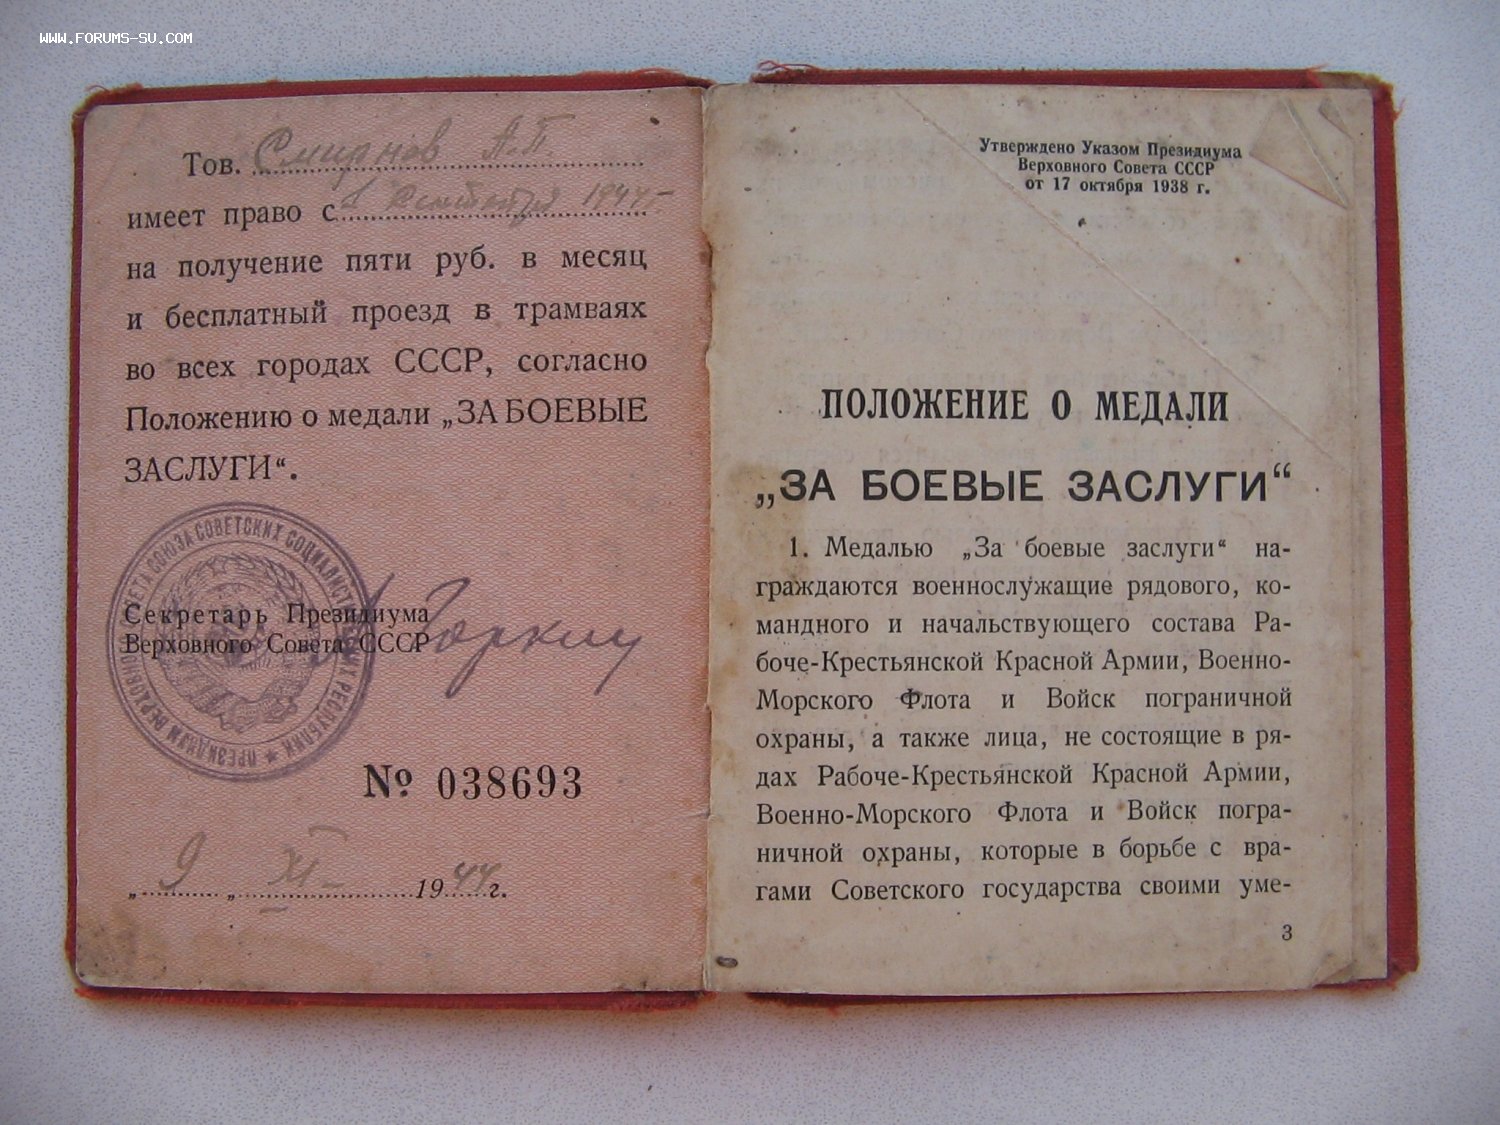 WWW.FORUMS-SU.COM
Тов. Смирнов А.П.
имеет право с 1 Сентября 1944 г
на получение пяти руб. в месяц
и бесплатный проезд в трамваях
во всех городах СССР, согласно
Положению о медали „ЗА БОЕВЫЕ
ЗАСЛУГИ“.
ПРЕЗИДИУМ ВЕРХОВНОГО СОВЕТА СОЮЗА СОВЕТСКИХ СОЦИАЛИСТИЧЕСКИХ РЕСПУБЛИК
Секретарь Президиума
Верховного Совета СССР
Горкин
№ 038693
„ 9 „ XI 1944 г.
Утверждено Указом Президиума
Верховного Совета СССР
от 17 октября 1938 г.
ПОЛОЖЕНИЕ О МЕДАЛИ
„ЗА БОЕВЫЕ ЗАСЛУГИ“
1. Медалью „За боевые заслуги“ на-
граждаются военнослужащие рядового, ко-
мандного и начальствующего состава Ра-
боче-Крестьянской Красной Армии, Военно-
Морского Флота и Войск пограничной
охраны, а также лица, не состоящие в ря-
дах Рабоче-Крестьянской Красной Армии,
Военно-Морского Флота и Войск погра-
ничной охраны, которые в борьбе с вра-
гами Советского государства своими уме-
3